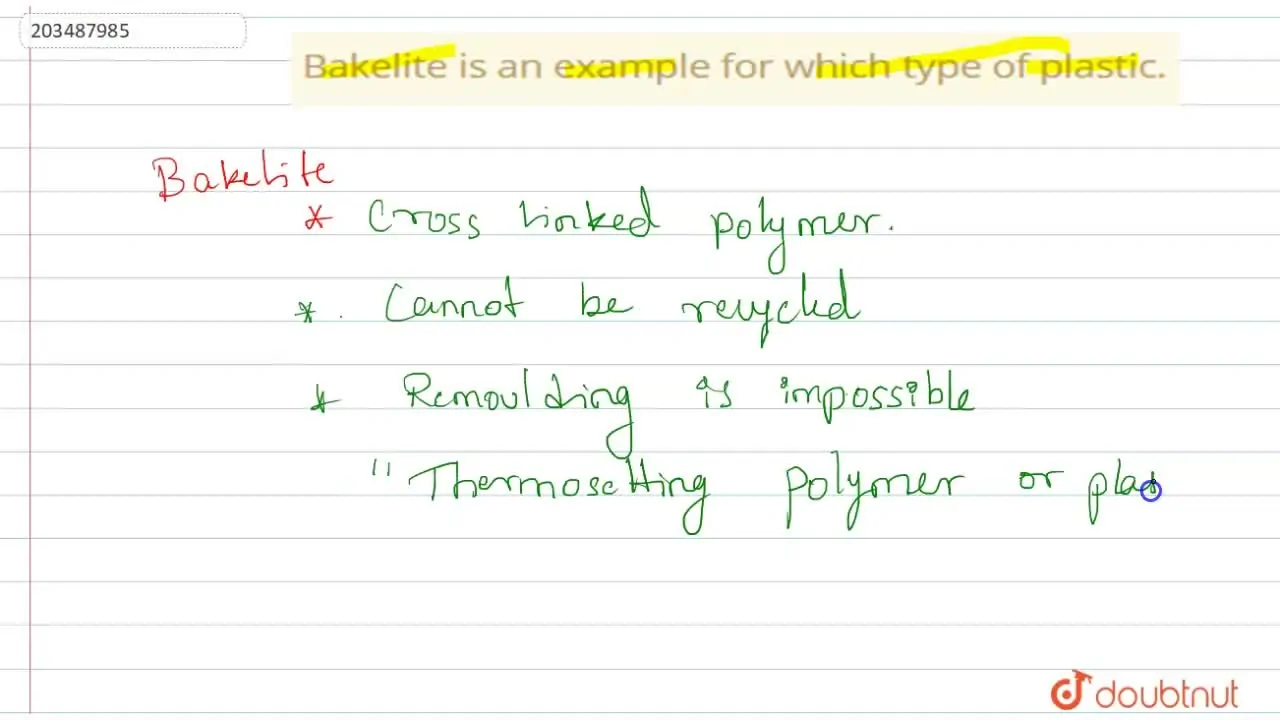 203487985
Bakelite is an example for which type of plastic.
Bakelite
* Cross linked polymer.
* Cannot be recycled
* Remoulding is impossible
" Thermosetting polymer or plas
doubtnut